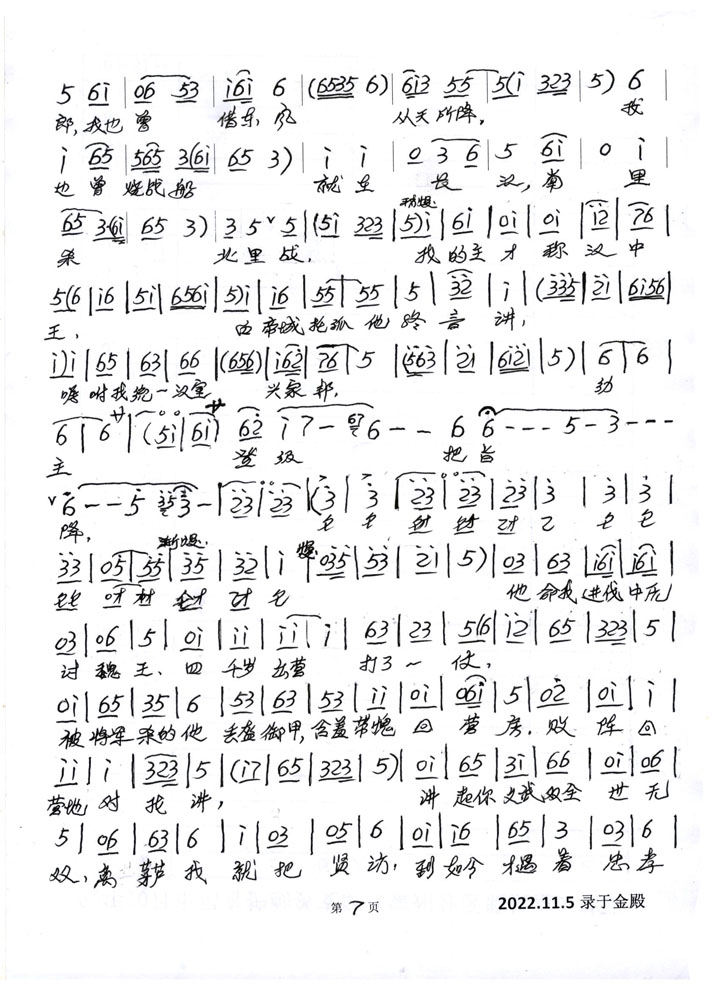 5 6i | 06 53 | i6i 6 | (6535 6) | 6i3 55 | 5(i 323 | 5) 6
郎,我也曾 借东风 从天所降, 我
i 65 | 565 3(6i | 65 3) | i i | 0 3 6 | 5 6i | 0 i |
也曾烧战船 就在 长江,南 里
65 36i | 65 3) | 3 5 5 | (5i 323 | 5)i | 6i | 0i | 0i | i2 | 76 |
杀 北里战, 我的主才称汉中
5(6 | i6 | 5i | 656i | 5)i | i6 | 55 | 55 | 5 | 32 | i | (335 | 2i | 6i56 |
王, 白帝城托孤他终言讲,
i)i | 65 | 63 | 66 | (656) | i62 | 76 | 5 | (563 | 2i | 6i2i | 5) | 6 | 6 |
嘱咐我把一汉室 兴家邦, 幼
6 | 6 | (5i | 6i) 62 i 7 - 67 6 - - 6 6 - - - 5 - 3 - - -
主 登级 把旨
6 - - 5 353 - | 23 | 23 | (3 | 3 | 23 | 23 | 23 | 3 | 3 | 3 |
降,
33 | 05 | 55 | 35 | 32 | i | 035 | 53 | 2i | 5) | 03 | 63 | i6i | i6i |
渐慢
他命我进伐中元
03 | 06 | 5 | 0i | ii | ii | i | 63 | 23 | 5(6 | i2 | 65 | 323 | 5 |
讨魏王、四千岁出营 打了一仗,
0i | 65 | 35 | 6 | 53 | 63 | 53 | ii | 0i | 06i | 5 | 02 | 0i | i |
被将军杀的他丢盔御甲,含羞带愧回营房,败阵回
ii | i | 323 | 5 | (i7 | 65 | 323 | 5) | 0i | 65 | 3i | 66 | 0i | 06 |
营地对我讲, 讲起你文武双全世无
5 | 06 | 63 | 6 | i | 03 | 05 | 6 | 0i | i6 | 65 | 3 | 03 | 6 |
双,离茅芦我就把贤访,到如今才遇着忠孝
第7页 2022.11.5 录于金殿